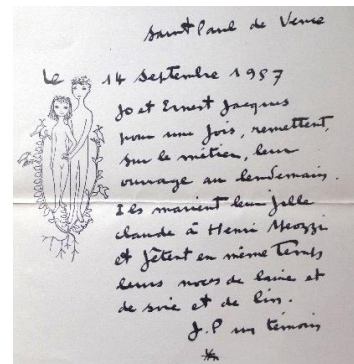 Saint Paul de Vence
Le 14 Septembre 1957
Jo et Ernest Jacques
pour une fois, remettent,
sur le métier, leur
ouvrage au lendemain.
Ils marient leur fille
claude à Henri
et fêtent en même temps
leurs noces de laine et
de soie et de lin.
J.P un témoin